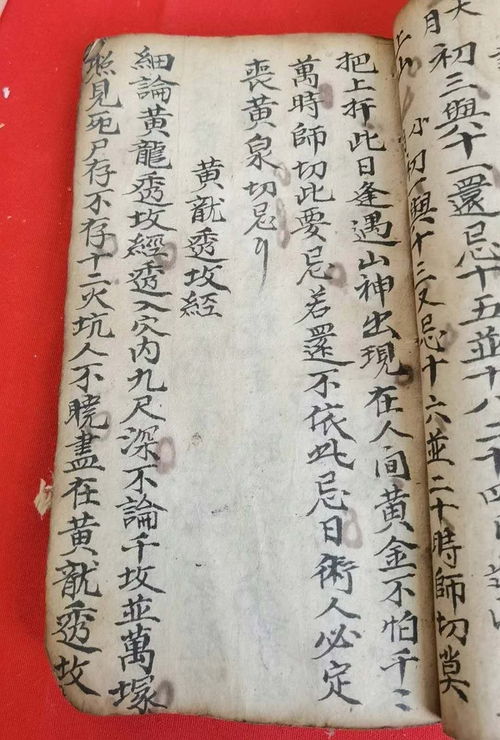 大
月
初三與六十一還忌十五並十八二十四
上山
小初一與十三又忌十六並二十時師切莫
把上扦此日逢遇山神出現在人间黄金不怕千〻
萬時師切此要忌若還不依此忌日術人必定
喪黄泉切忌
黄龍透坟經
細論黄龍透坟經透入穴内九尺深不論千坟並萬塚
照見死尸存不存十二火坑人不曉盡在黄龍透坟